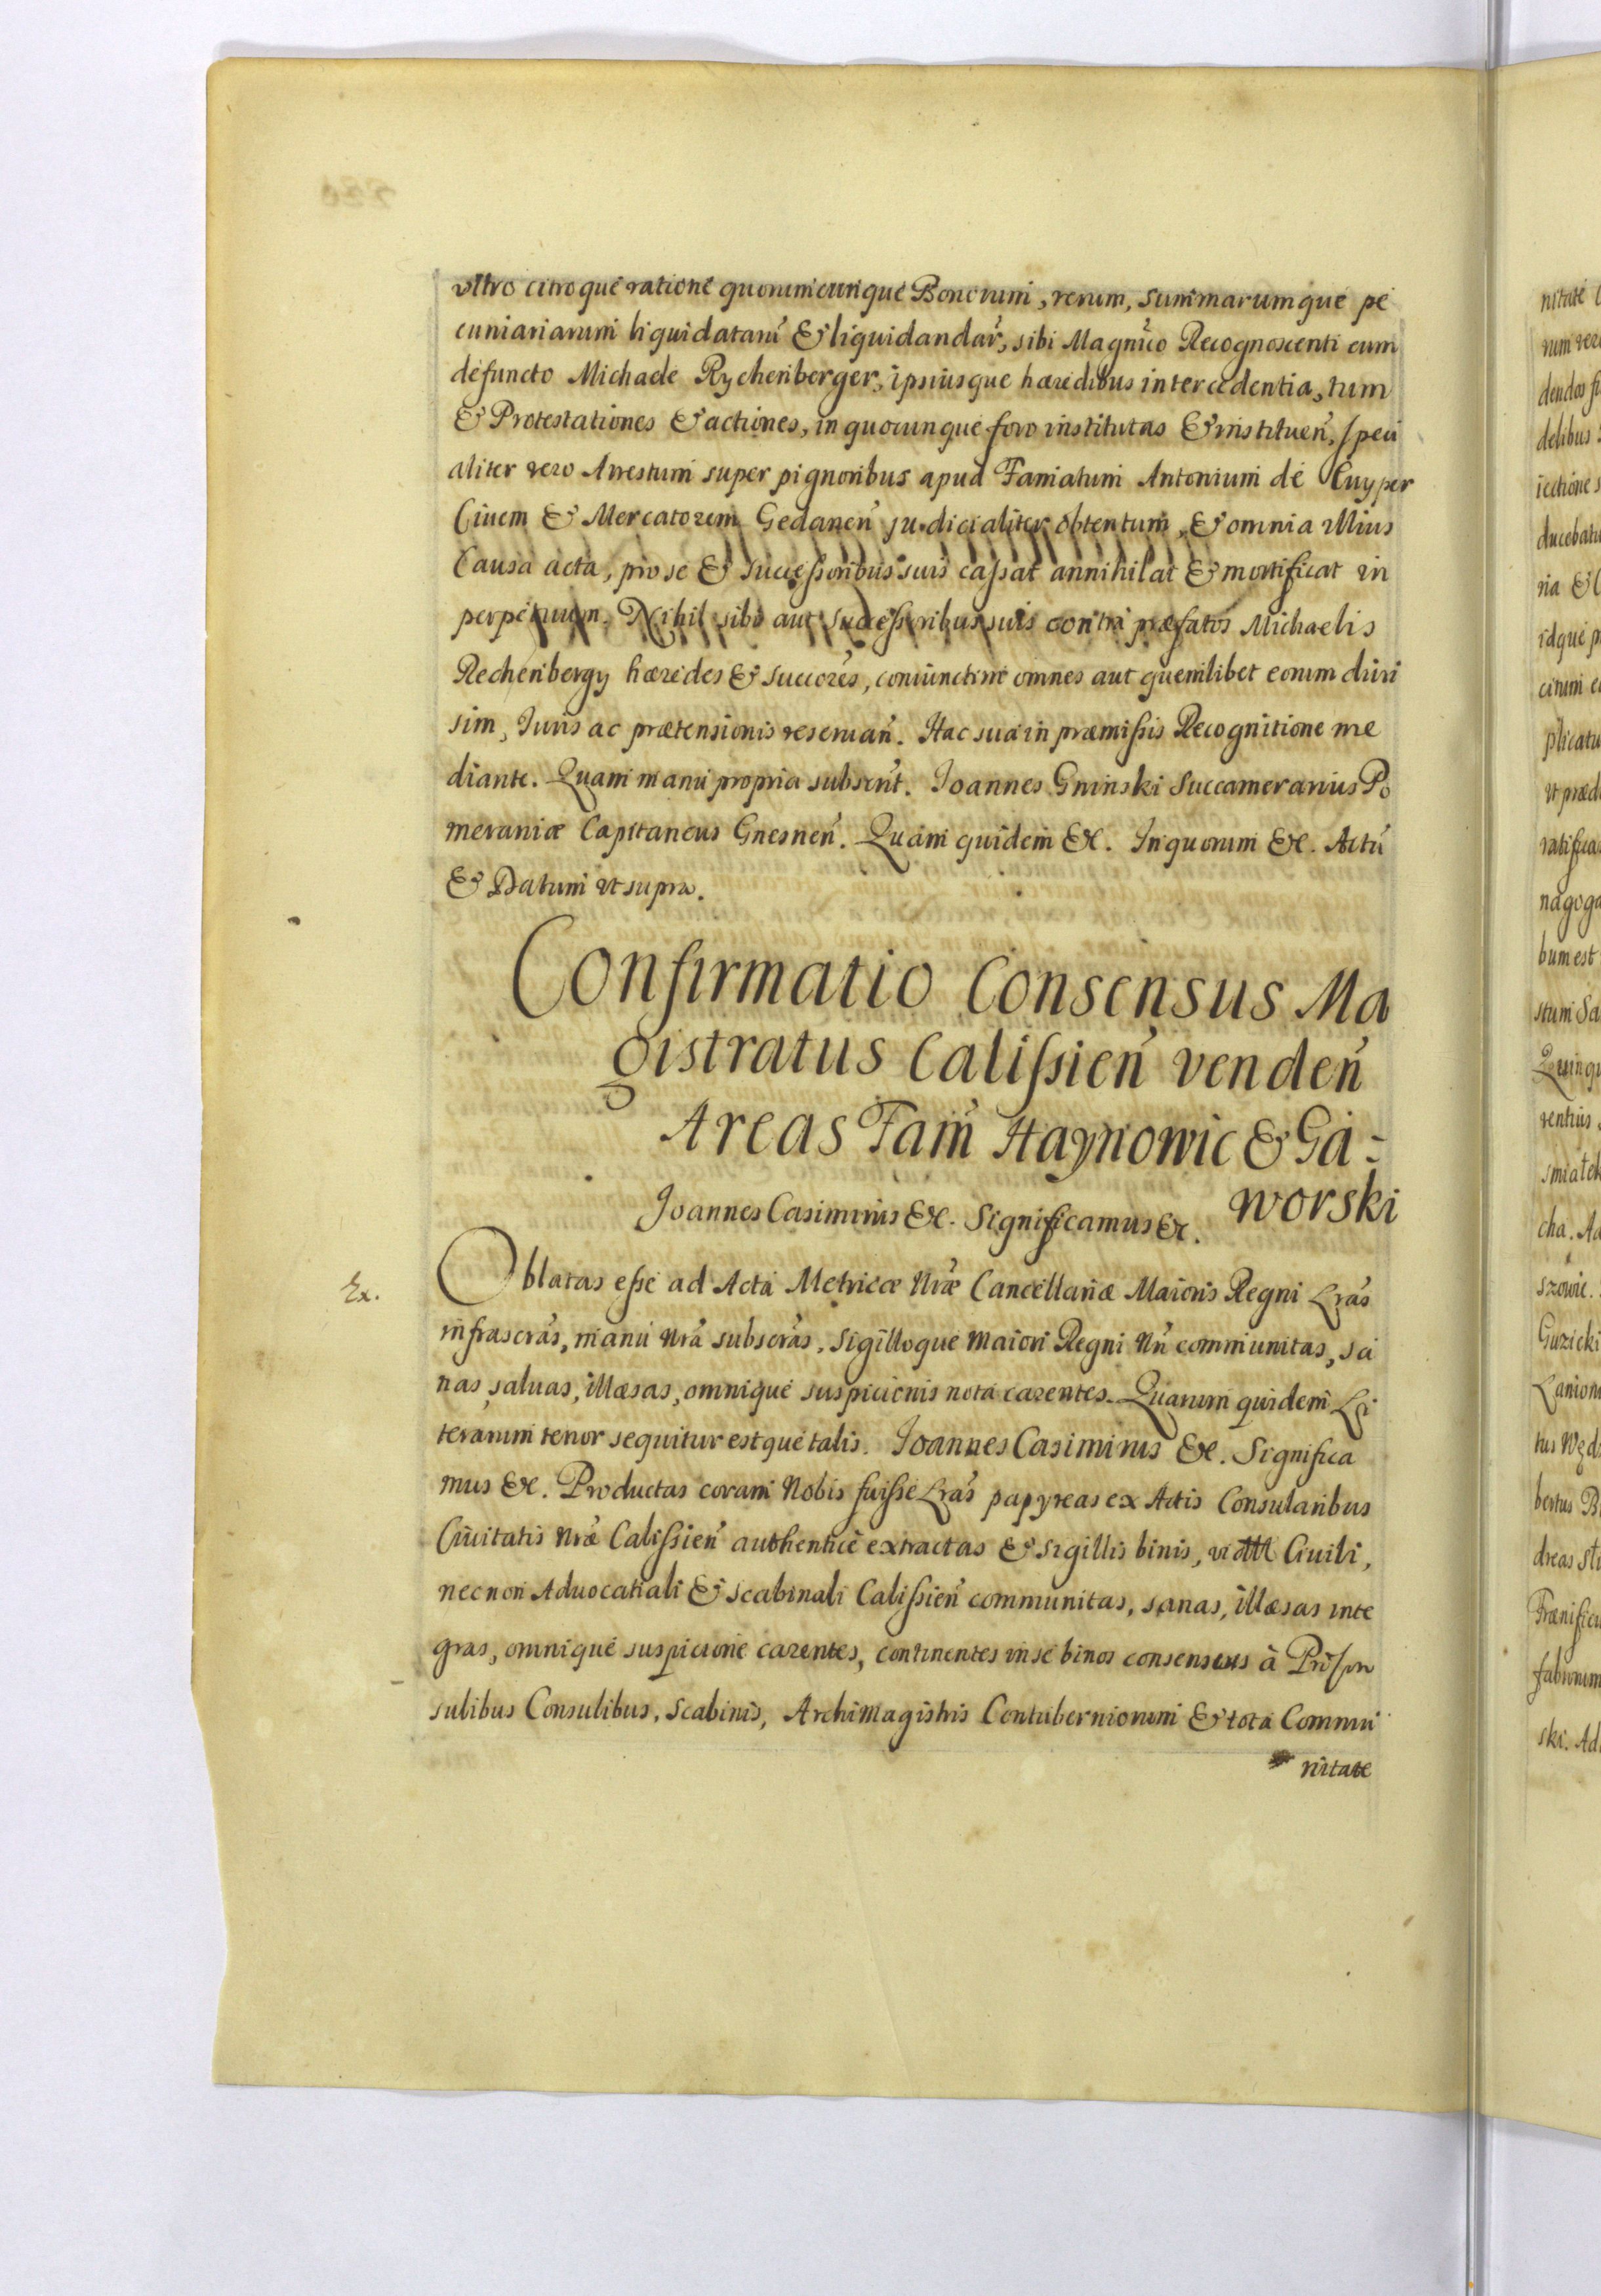 vltro citroque ratione quorumcunque Bonorum, rerum, summarumque pe
cuniariarum liquidatarũ & liquidandar̃, sibi Magnĩco Recognoscenti cum
defuncto Michaele Rychenberger, ipsiusque hæredibus intercedentia, tum
& Protestationes & actiones, in quocunque foro institutas & instituen̄, speci
aliter vero Arrestum super pignoribus apud Famatum Antonium de Cuyper
Ciuem & Mercatorem Gedanen̄ judicialiter obtentum, & omnia illius
Causa acta, pro se & successoribus suis cassat annihilat & mortificat in
perpetuum. Nihil sibi aut successoribus suis contra præfatos Michaelis
Rechenbergy hæredes & succor̃es, coniunctim omnes aut quemlibet eorum diui
sim, Iuris ac prætensionis reseruan̄. Hac sua in præmissis Recognitione me
diante. Quam manu propria subscrit̃. Joannes Gninski Succamerarius Po
meraniæ Capitaneus Gnesnen̄. Quam quidem &c. In quorum &c. Actũ
& Datum vt supra.
Confirmatio Consensus Ma
gistratus Calissien̄ venden̄
Areas Fam̄ Haynowic & Ga-
worski
Joannes Casimirus &c. Significamus &c.
Ex.
Oblatas esse ad Acta Metricæ Nr̃æ Cancellariæ Maioris Regni Lr̃as
infrascr̃as, manu Nr̃a subscr̃as, Sigilloque maiori Regni Nr̃i communitas, sa
nas, saluas, illæsas, omnique suspicionis nota carentes. Quarum quidem Li
terarum tenor sequitur estque talis. Joannes Casimirus &c. Significa
mus &c. Productas coram Nobis fuisse Lr̃as papyreas ex Actis Consularibus
Ciuitatis Nr̃æ Calissien̄ authentice extractas & sigillis binis, Ciuili,
necnon Aduocatiali & scabinali Calissien̄ communitas, sanas, illæsas inte
gras, omnique suspicione carentes, continentes in se binos consensus à
sulibus Consulibus, Scabinis, Archimagistris Contuberniorum & tota Commu
nitate